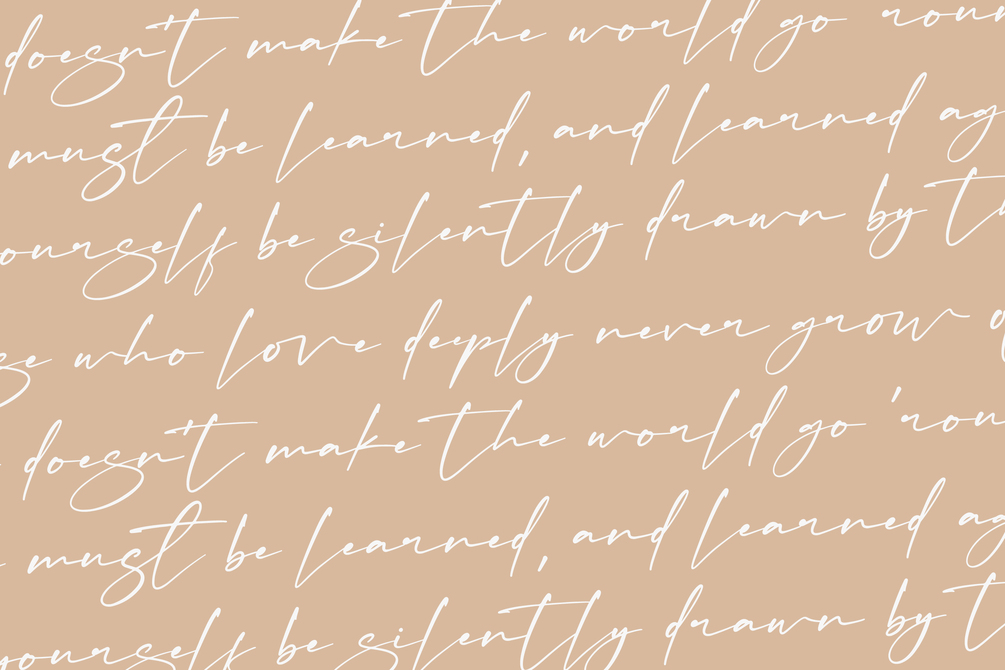 doesn't make the world go 'roun
must be learned, and learned ag
ourself be silently drawn by t
se who love deeply never grow o
doesn't make the world go 'roun
must be learned, and learned ag
yourself be silently drawn by t